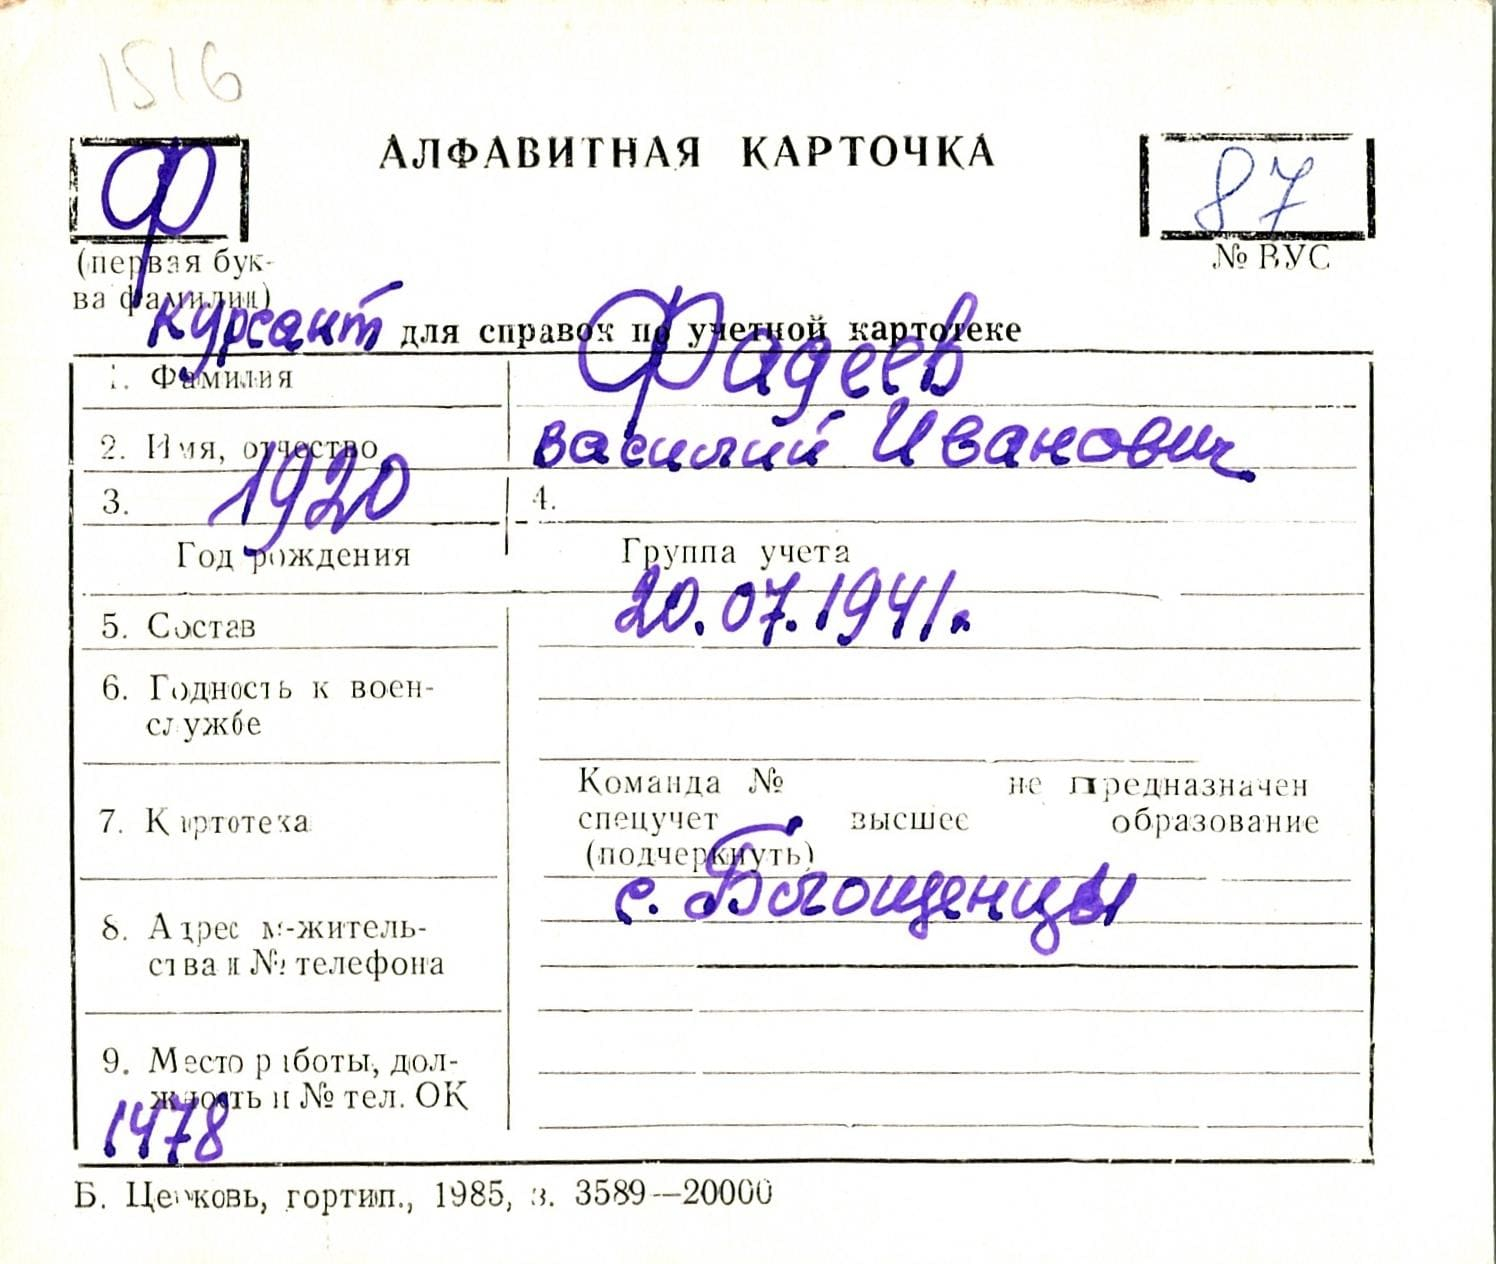 1516
Ф
АЛФАВИТНАЯ КАРТОЧКА
87
(первая бук-
ва фамилии)
№ ВУС
Курсант
для справок по учетной картотеке
1. Фамилия
Фадеев
2. Имя, отчество
Василий Иванович
3. 1920
4.
Год рождения
Группа учета
5. Состав
20.07.1941г.
6. Годность к воен-
службе
7. Картотека
Команда № не предназначен
спецучет высшее образование
(подчеркнуть)
8. Адрес м-житель-
ства и № телефона
с. Благощенцы
9. Место работы, дол-
жность и № тел. ОК
1478
Б. Церковь, гортип., 1985, з. 3589—20000